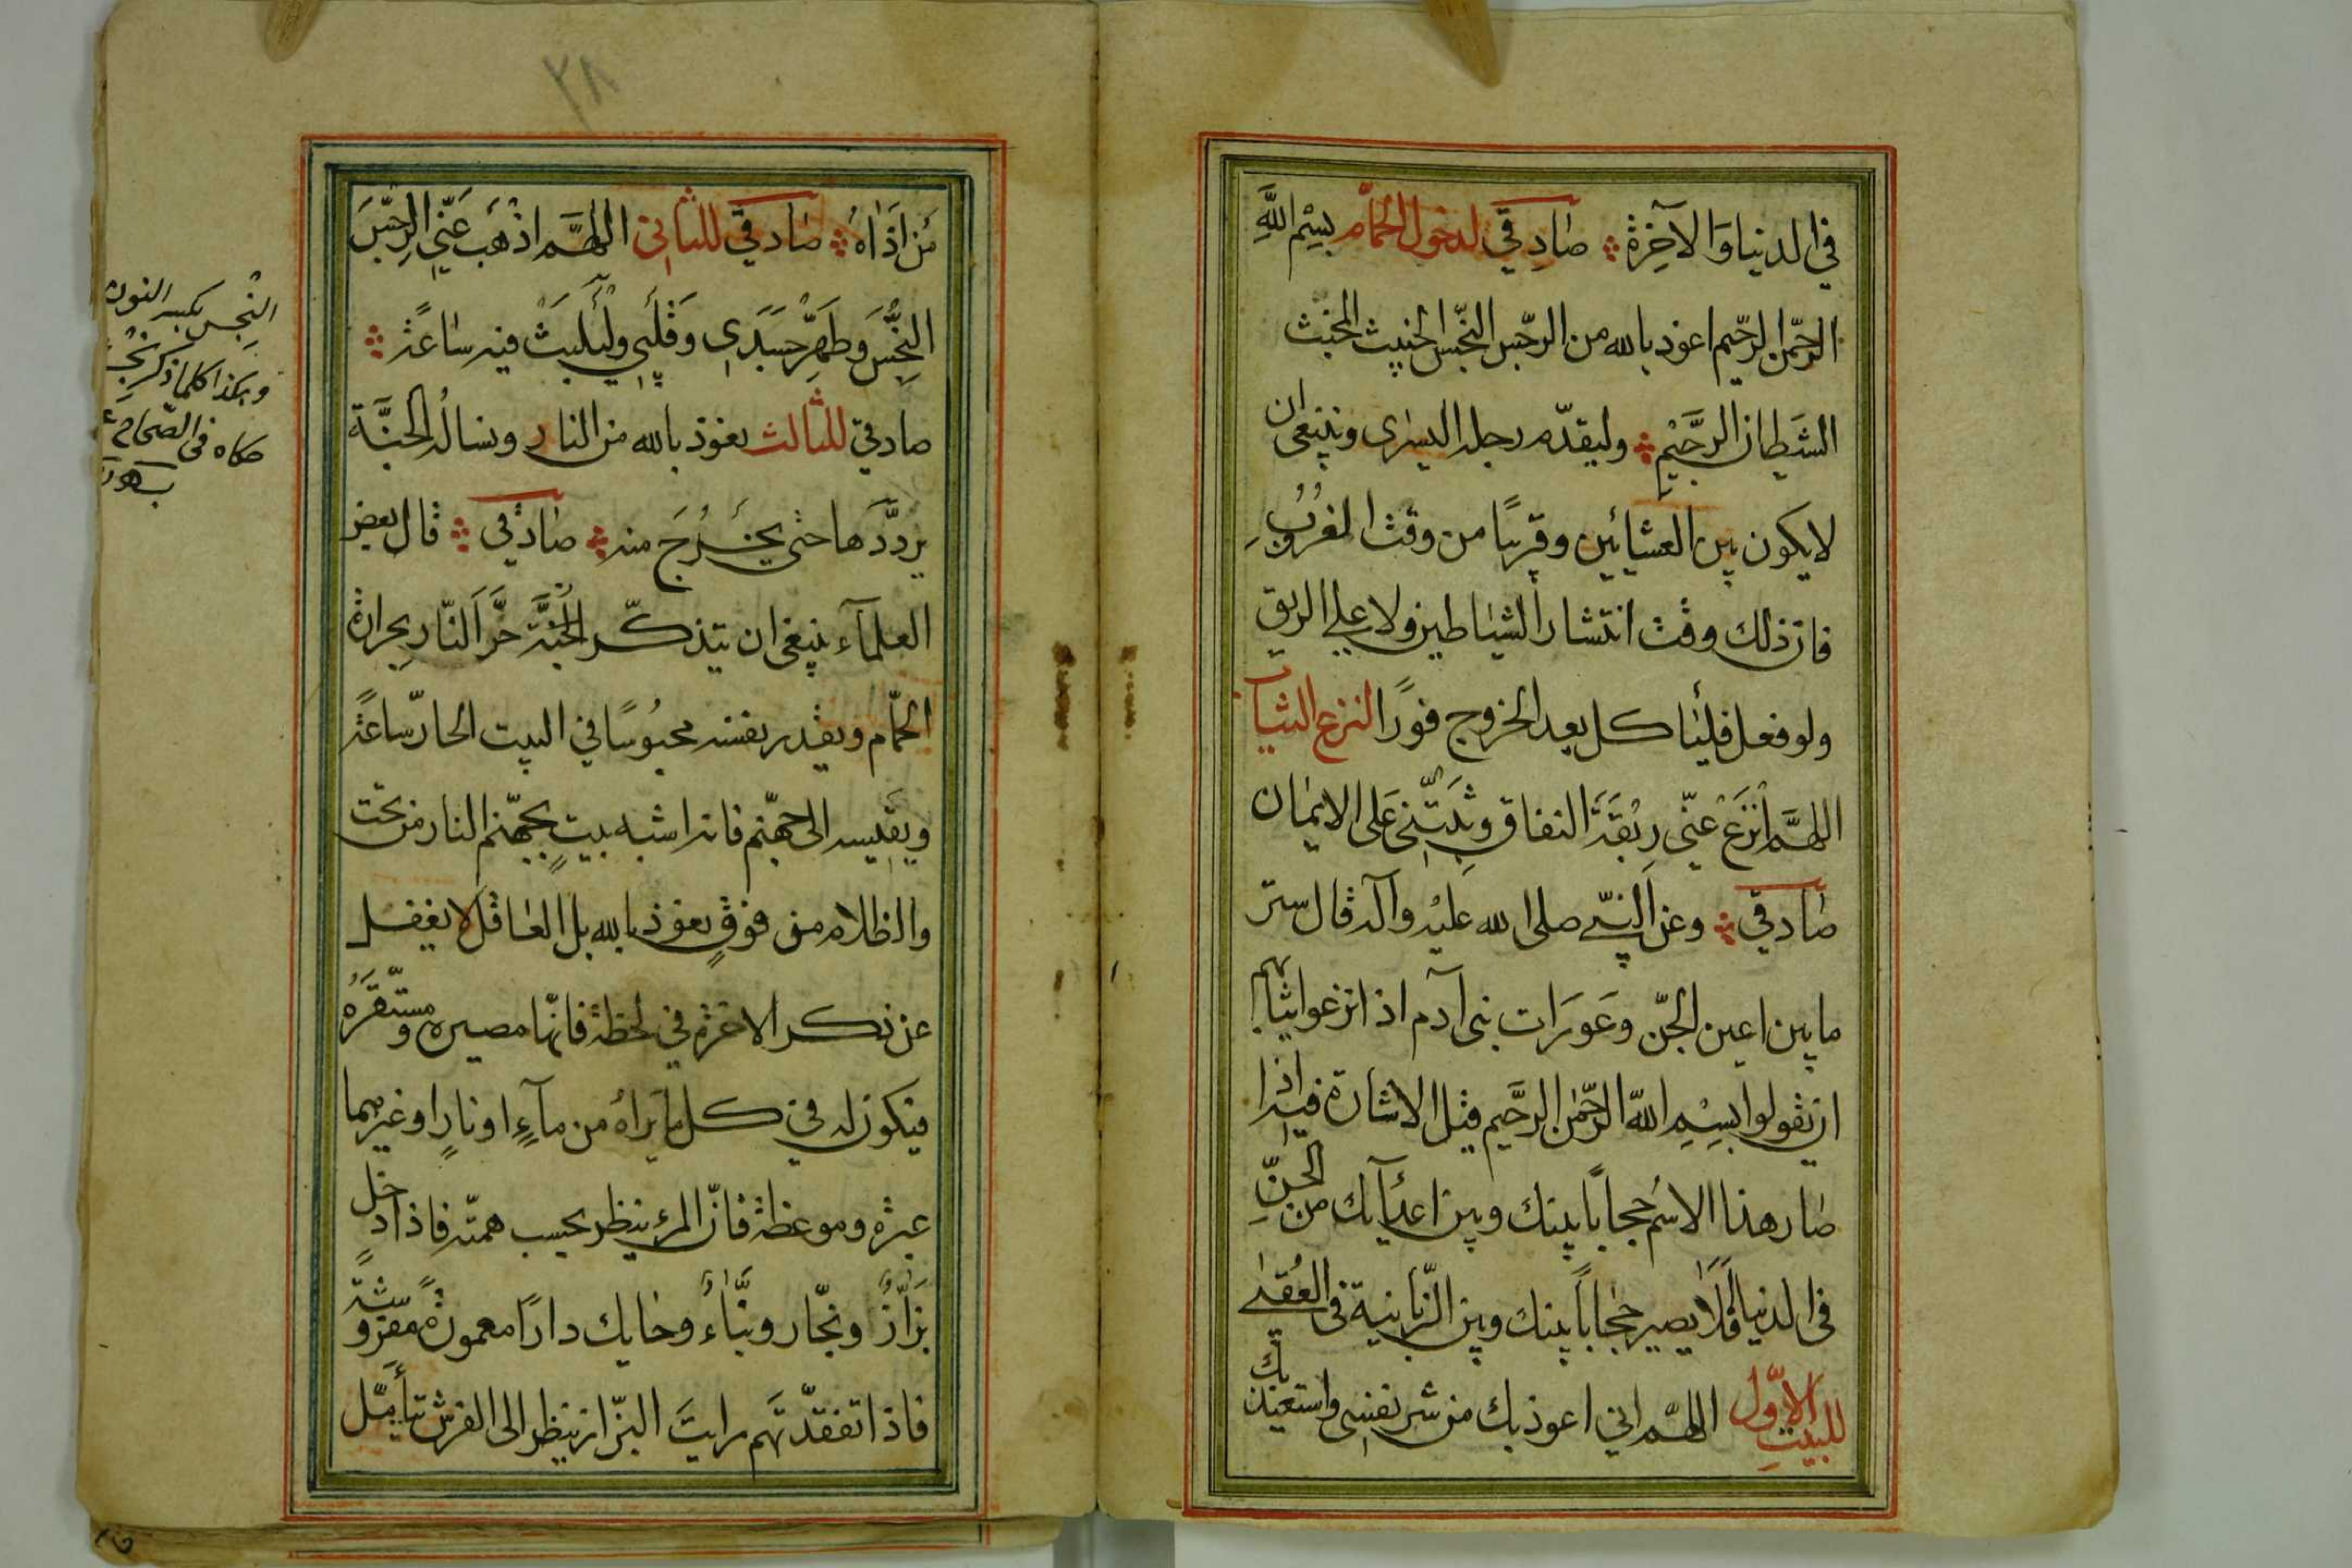 في الدنيا وَالآخِرة صَادِقي لدخول الحمّام بِسْمِ اللَّهِ
الرّحمن الرّحيم اعوذ بالله من الرّجس النّجس الخبيث المخبث
الشَيطان الرَّجِيْمِ وليقدّم رجله اليسرى وينبغي ان
لا يكون بين العشائين وقريبًا من وقت الغرُوُبِ
فان ذلك وقت انتشار الشياطين ولا على الريق
ولو فعل فليأكل بعد الخروج فورًا لنزع الثياب
اللهمَّ انْزَعْ عَنّي رِبْقَةَ النفاق وثَبِّتْنِي عَلى الايمان
صَادقي وعن النبيّ صلى الله عليْه وآله قال ستر
ما بين اعين الجنّ وعَورَات بني آدم اذا نزعوا ثيابهم
ان يقولوا بِسْمِ اللّه الرّحمٰن الرَّحيم قيل الاشارة فيه اذا
صار هذا الاسْم حجابًا بينك وبين اعدآيك من الجنّ
في الدنيا أَفَلَا يصير حجابًا بينك وبين الزّبانية في العُقبى
للبيت الاوّل اللهمّ اني اعوذ بك من شر نفسي واستعيذ بك
مَن اَذَاهُ صَادقي للثاني اللهمَّ اذْهَب عَنّي الرِجسَ
النِجْسَ وَطَهِّرْ جَسَدِي وَقَلْبي وَلْيَلْبَثْ فيه سَاعَةً
صادقي للثالث نعوذ بالله من النار ونسالُه الجنّة
يردَّدَها حتى يَخْرُجَ منه صَادِقي قال بعض
العلمآء ينبغي ان يتذكّر حَرَّ النّار بحرارة
الحمّام ويقدر نفسه محبُوسًا في البيت الحارّ ساعَةً
ويقيسه الى جهنّم فانه اشبه بيتٍ بجهنّم النار من تحت
والظلام من فوقٍ نعوذ بالله بل العاقل لا يغفل
عن ذكر الاخرة في لحظة فانّها مصيره ومستقرّه
فيكون له في كل ما يَراهُ من مآءٍ او نارٍ او غيرهما
عبرة وموعظة فانّ المرء ينظر بحسب همّته فاذا دخل
بَزَّازٌ ونجّار وبنَّاءٌ وحايك دارًا معمورةً مفروشةً
فاذا تفقدّتَهم رايتَ البزّاز ينظر الى الفرش يتأمّل
النجس بكسر النون
وهكذا كلما ذكر
حكاه في الصحاح
٢٨